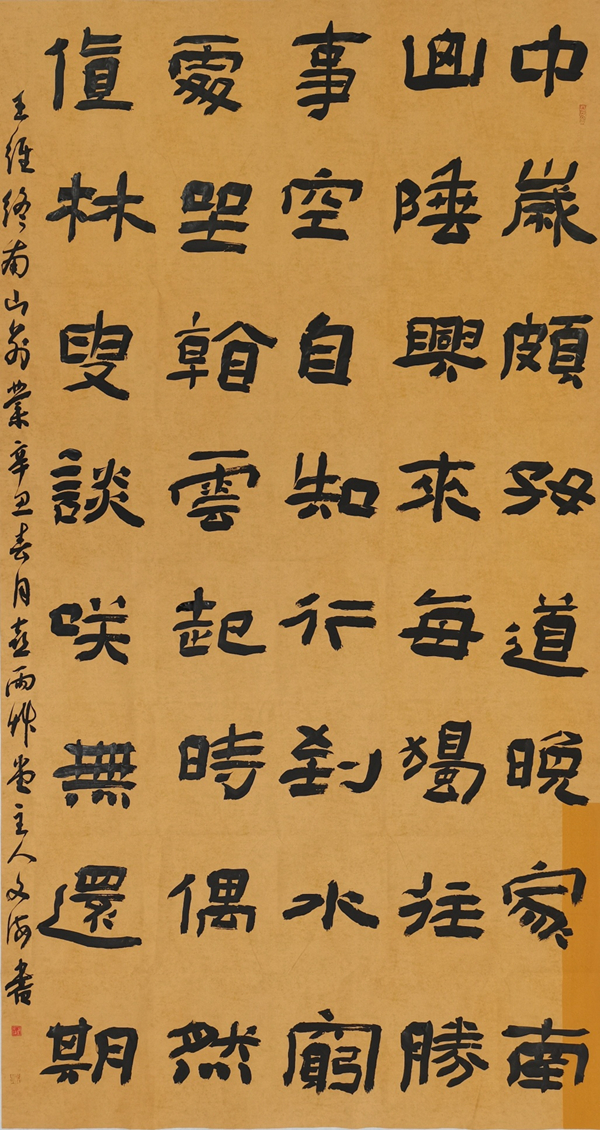 中歲頗好道晚家南
山陲興來每獨往勝
事空自知行到水窮
處坐看雲起時偶然
值林叟談咲無還期
王維終南山別業辛丑春月喜雨艸堂主人文海書